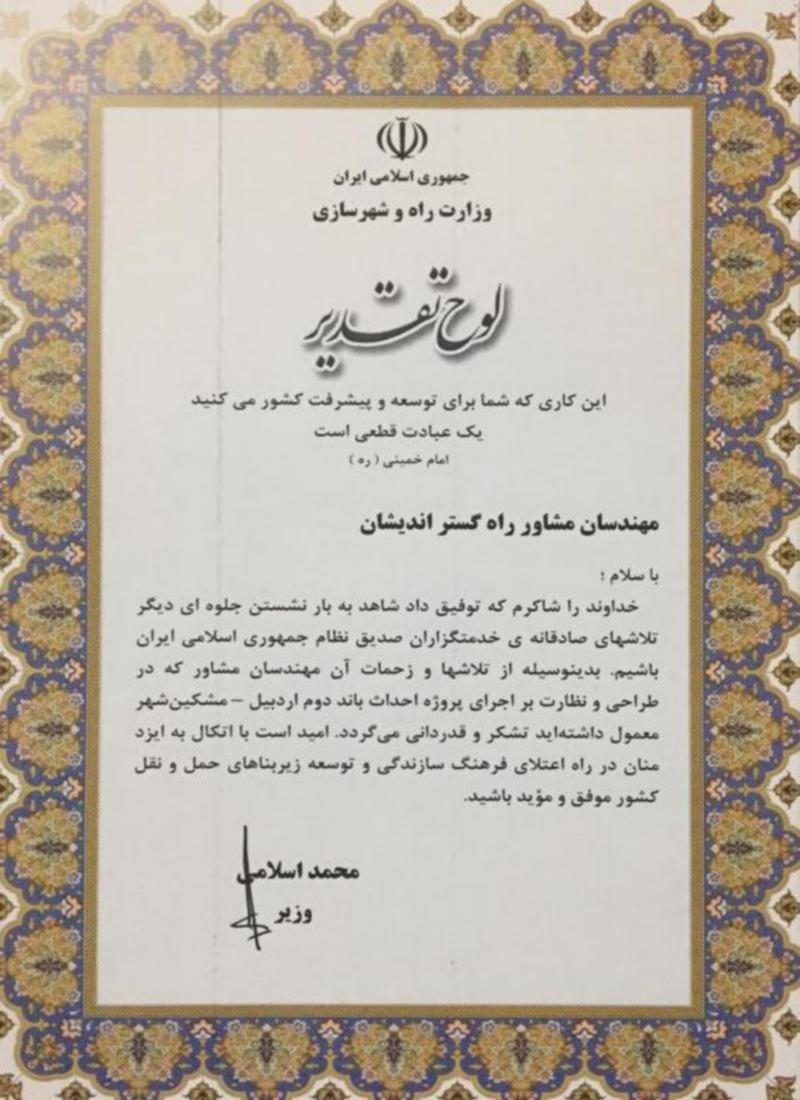 جمهوری اسلامی ایران
وزارت راه و شهرسازی
لوح تقدیر
این کاری که شما برای توسعه و پیشرفت کشور می کنید
یک عبادت قطعی است
امام خمینی ( ره )
مهندسان مشاور راه گستر اندیشان
با سلام ؛
خداوند را شاکرم که توفیق داد شاهد به بار نشستن جلوه ای دیگر
تلاشهای صادقانه ی خدمتگزاران صدیق نظام جمهوری اسلامی ایران
باشیم. بدینوسیله از تلاشها و زحمات آن مهندسان مشاور که در
طراحی و نظارت بر اجرای پروژه احداث باند دوم اردبیل – مشکین‌شهر
معمول داشته‌اید تشکر و قدردانی می‌گردد. امید است با اتکال به ایزد
منان در راه اعتلای فرهنگ سازندگی و توسعه زیربناهای حمل و نقل
کشور موفق و مؤید باشید.
محمد اسلامی
وزیر